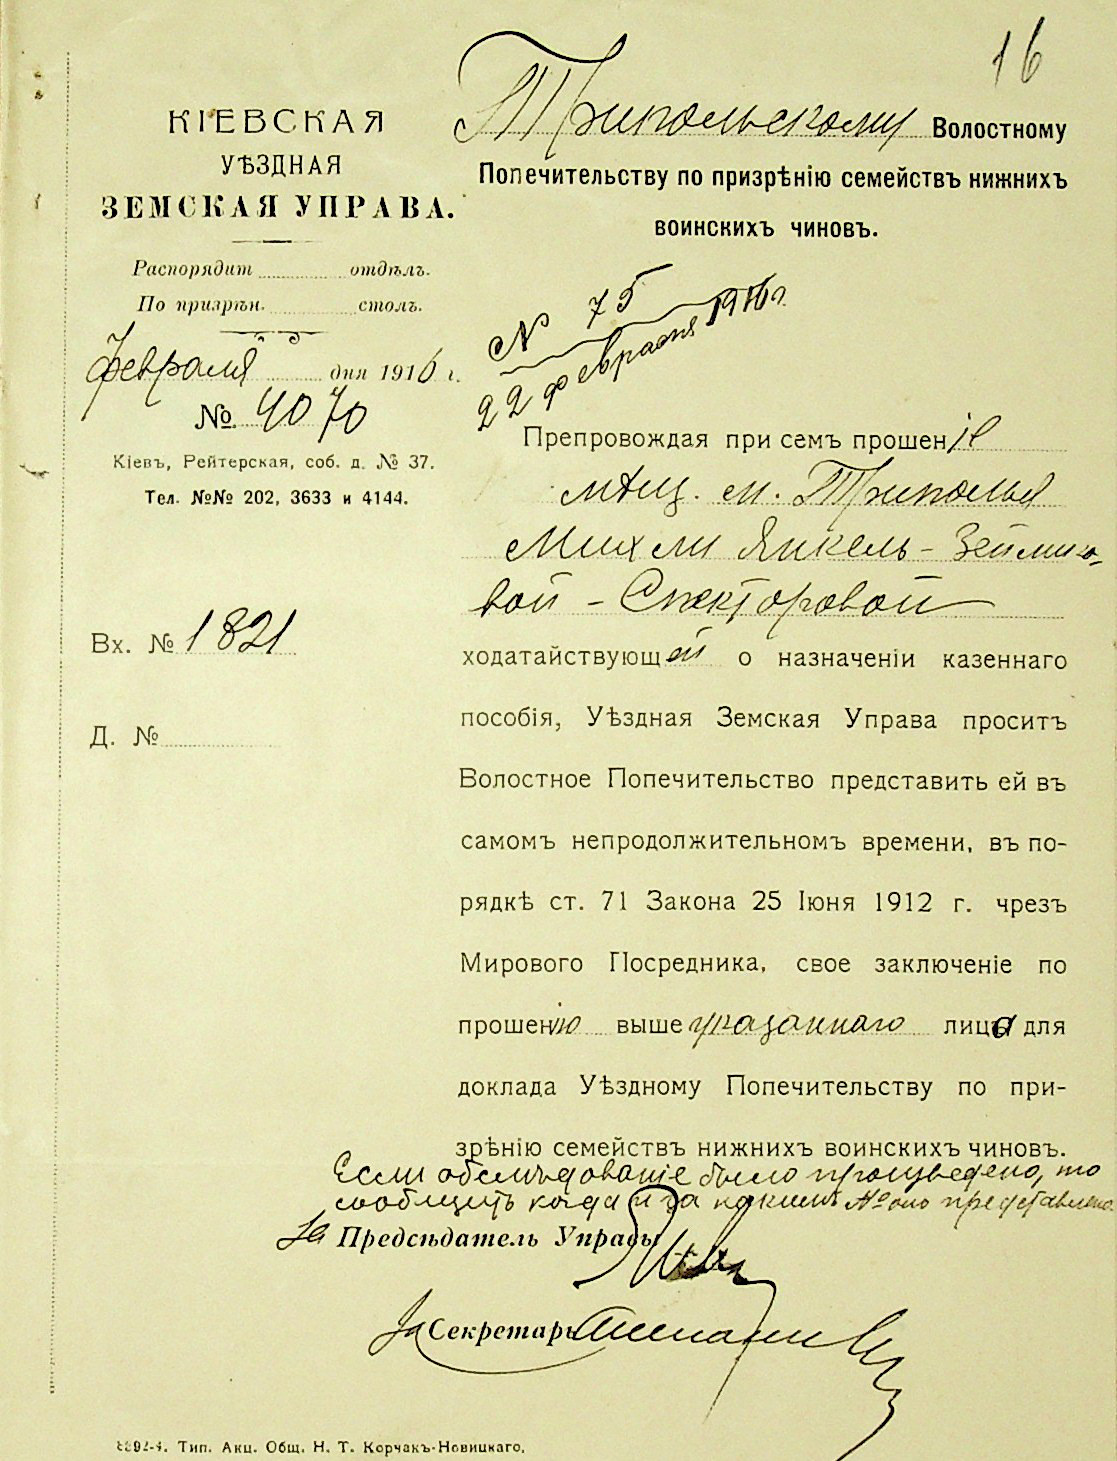 16
КІЕВСКАЯ
УѢЗДНАЯ
ЗЕМСКАЯ УПРАВА.
Распорядит отдѣлъ.
По призрѣн. столъ.
Февраля дня 1916 г.
№ 4070
Кіевъ, Рейтерская, соб. д. № 37.
Тел. №№ 202, 3633 и 4144.
Вх. № 1821
Д. №
Трипольскому Волостному
Попечительству по призрѣнію семействъ нижнихъ
воинскихъ чиновъ.
№ 75
22 февраля 1916 г.
Препровождая при семъ прошеніе
мѣщ. м. Триполья
Михли Янкель-Зейлико-
вой - Спекторовой
ходатайствующей о назначеніи казеннаго
пособія, Уѣздная Земская Управа проситъ
Волостное Попечительство представить ей въ
самомъ непродолжительномъ времени, въ по-
рядкѣ ст. 71 Закона 25 Іюня 1912 г. чрезъ
Мирового Посредника, свое заключеніе по
прошенію вышеуказаннаго лица для
доклада Уѣздному Попечительству по при-
зрѣнію семействъ нижнихъ воинскихъ чиновъ.
Если обслѣдованіе было произведено, то
сообщить когда и за какимъ № оно представлено.
За Предсѣдатель Управы
За Секретарь
Тип. Акц. Общ. Н. Т. Корчакъ-Новицкаго.